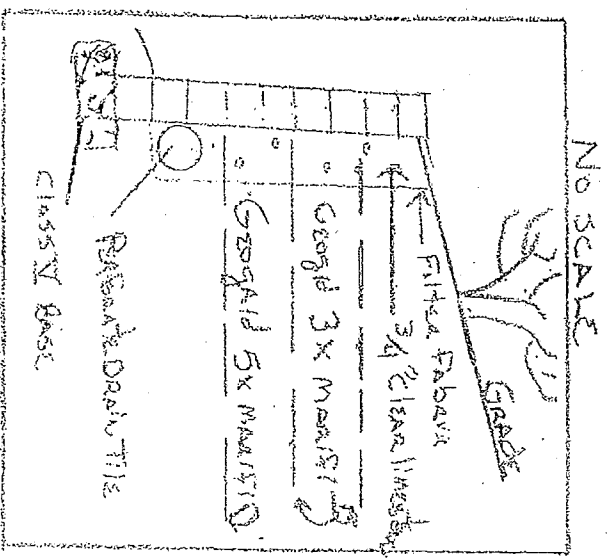 NO SCALE
GRADE
Filter Fabric
3/4" Clear limestone
Geogrid 3X
Geogrid 5X
Perforate Drain Tile
Class V Base